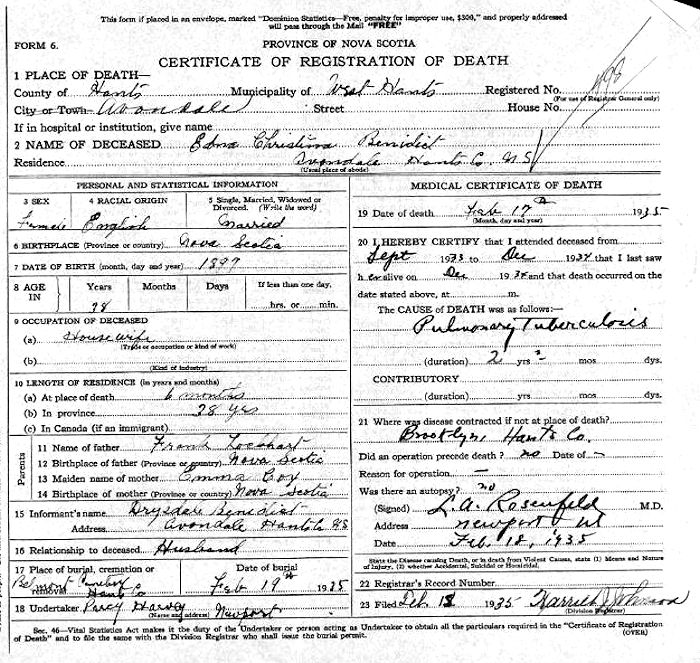 This form if placed in an envelope, marked "Dominion Statistics—Free, penalty for improper use, $300," and properly addressed
will pass through the Mail "FREE"
FORM 6.
PROVINCE OF NOVA SCOTIA
CERTIFICATE OF REGISTRATION OF DEATH
1 PLACE OF DEATH—
County of Hants Municipality of West Hants Registered No.
(For use of Registrar General only)
City or Town Avondale Street House No.
If in hospital or institution, give name
2 NAME OF DECEASED Edna Christina Benidict
Residence Avondale Hants Co. N.S.
(Usual place of abode)
PERSONAL AND STATISTICAL INFORMATION
3 SEX 4 RACIAL ORIGIN 5 Single, Married, Widowed or
Divorced. (Write the word)
Female English Married
6 BIRTHPLACE (Province or country) Nova Scotia
7 DATE OF BIRTH (month, day and year) 1897
8 AGE IN Years Months Days If less than one day,
38 hrs. or min.
9 OCCUPATION OF DECEASED
(a) Housewife
(Trade or occupation or kind of work)
(b)
(Kind of industry)
10 LENGTH OF RESIDENCE (in years and months)
(a) At place of death 6 months
(b) In province 38 yrs
(c) In Canada (if an immigrant)
Parents
11 Name of father Frank Lockhart
12 Birthplace of father (Province or country) Nova Scotia
13 Maiden name of mother Emma Cox
14 Birthplace of mother (Province or country) Nova Scotia
15 Informant's name Drysdale Benidict
Address Avondale Hants Co N.S.
16 Relationship to deceased Husband
17 Place of burial, cremation or removal Date of burial
Belmont Hants Co Feb 19th 1935
18 Undertaker Percy Harvey Newport
(Name and address)
MEDICAL CERTIFICATE OF DEATH
19 Date of death Feb 17th 1935
(Month, day and year)
20 I HEREBY CERTIFY that I attended deceased from
Sept 1933 to Dec 1934 that I last saw
her alive on Dec 1934 and that death occurred on the
date stated above, at m.
The CAUSE OF DEATH was as follows:—
Pulmonary Tuberculosis
(duration) 2 yrs mos dys.
CONTRIBUTORY
(duration) yrs mos dys.
21 Where was disease contracted if not at place of death?
Brooklyn, Hants Co.
Did an operation precede death? no Date of –
Reason for operation –
Was there an autopsy? no
(Signed) L.A. Rosenfeld M.D.
Address Newport
Date Feb. 18, 1935
State the Disease causing Death, or in death from Violent Causes, state (1) Means and Nature
of Injury, (2) whether Accidental, Suicidal or Homicidal.
22 Registrar's Record Number
23 Filed Feb 18 1935 Harriet J Johnson
(Division Registrar)
Sec. 46—Vital Statistics Act makes it the duty of the Undertaker or person acting as Undertaker to obtain all the particulars required in the "Certificate of Registration
of Death" and to file the same with the Division Registrar who shall issue the burial permit. (OVER)